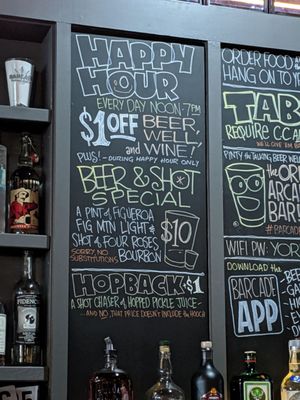 HAPPY
HOUR
EVERY DAY NOON-7PM
$1 OFF BEER,
WELL,
WINE!
PLUS! - DURING HAPPY HOUR ONLY
BEER & SHOT
SPECIAL
A PINT OF FIGUEROA
FIG MTN LIGHT &
SHOT OF FOUR ROSES
SORRY NO
SUBSTITUTIONS
BOURBON
$10
HOPBACK $1
A SHOT CHASER OF HOPPED PICKLE JUICE
...AND NO, THAT PRICE DOESN'T INCLUDE THE HOOCH
ORDER FOOD
HANG ON TO
TAB
REQUIRE CC
PINTY THE TALKING BEER
THE OR
ARCA
BAR
WIFI PW:
DOWNLOAD THE
BARCADE
APP